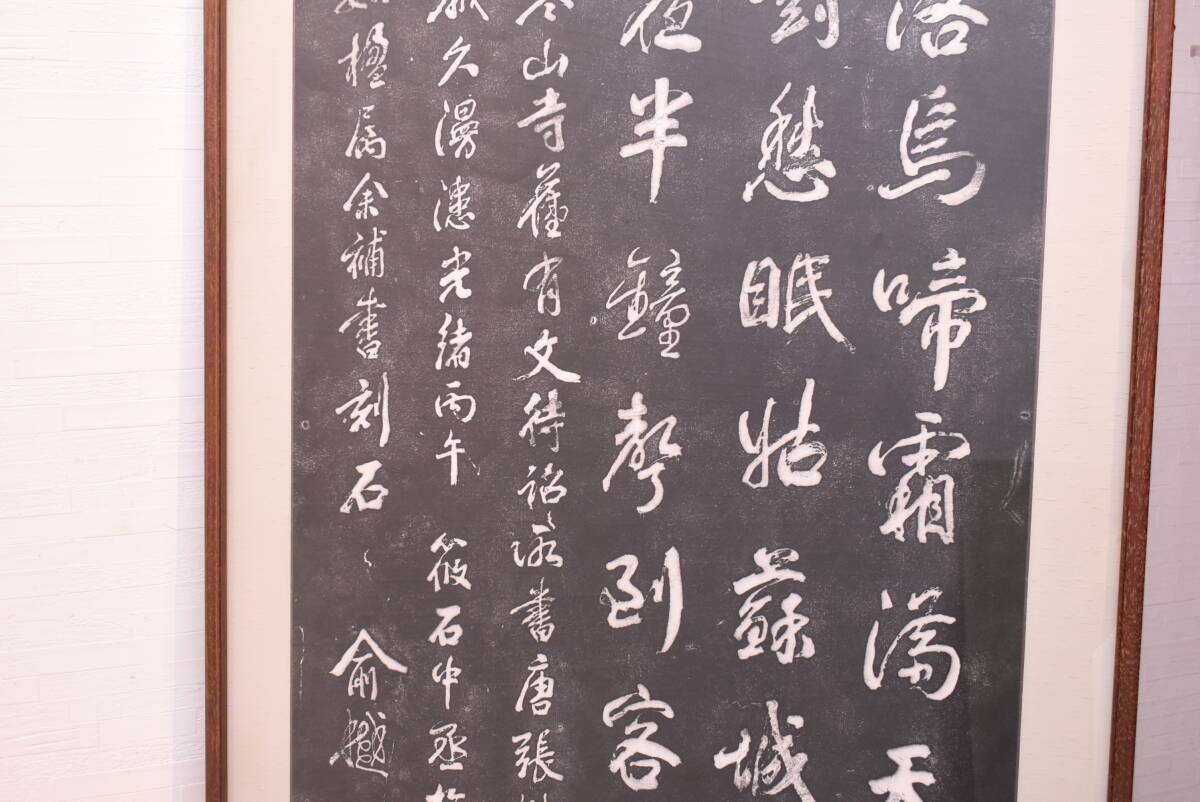 落烏啼霜滿天
對愁眠姑蘇城
夜半鐘聲到客
寒山寺舊有文待詔所書唐張
久漫漶光緒丙午筱石中丞
楹属余補書刻石〻俞樾